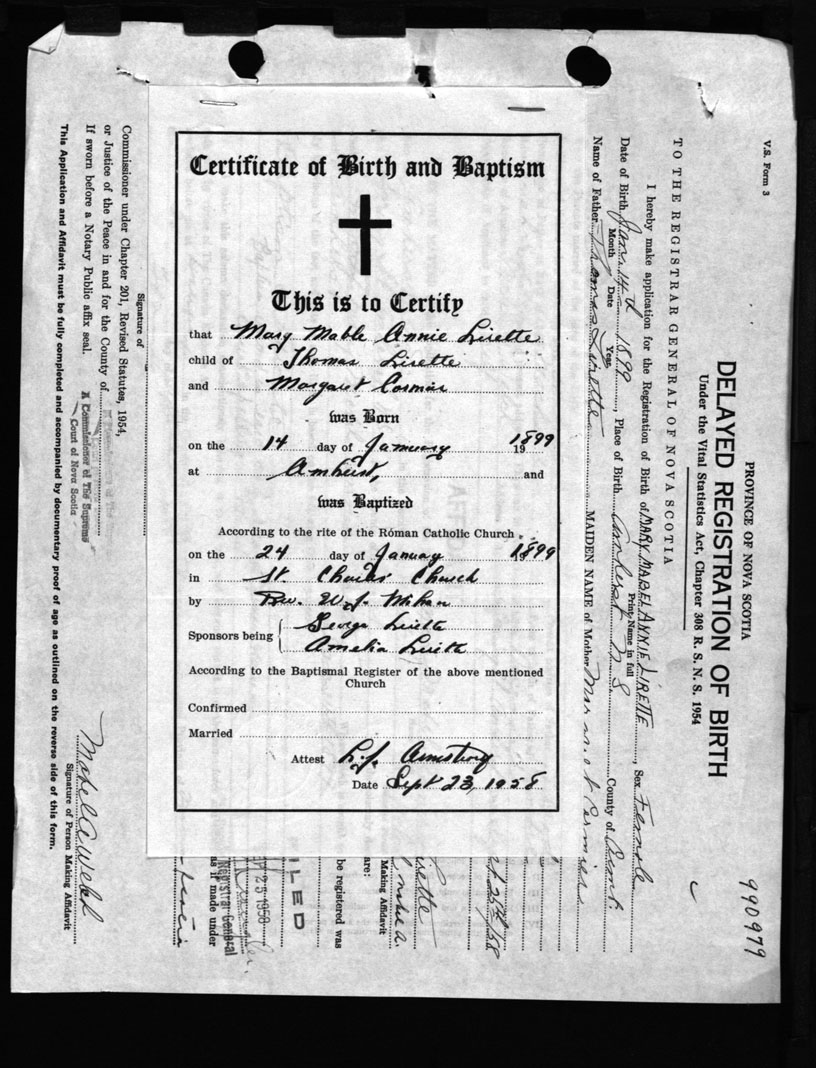 Certificate of Birth and Baptism
This is to Certify
that Mary Mable Annie Lirette
child of Thomas Lirette
and Margaret Cormier
was Born
on the 14 day of January 19 1899
at Amherst, and
was Baptized
According to the rite of the Roman Catholic Church
on the 24 day of January 1899
in St. Charles Church
by Rev. W. J.
Sponsors being George Lirette
Amelia Lirette
According to the Baptismal Register of the above mentioned
Church
Confirmed
Married
Attest
Date Sept 23, 1958
V.S. Form 3
990979
PROVINCE OF NOVA SCOTIA
DELAYED REGISTRATION OF BIRTH
Under the Vital Statistics Act, Chapter 308 R. S. N. S. 1954
TO THE REGISTRAR GENERAL OF NOVA SCOTIA
I hereby make application for the Registration of Birth of MARY MABEL ANNIE LIRETTE, Sex Female
Print Name in full
Date of Birth Jan. 14th 1899, Place of Birth Amherst N S County of Cumb.
Month Date Year
Name of Father Thomas Lirette MAIDEN NAME of Mother
25th/58
rette
Mabel A.
Making Affidavit
are:
be registered was
ILED
25 1958
Registrar General
as if made under
Signature of
Commissioner under Chapter 201, Revised Statutes, 1954,
or Justice of the Peace in and for the County of
If sworn before a Notary Public affix seal.
A Commissioner of The Supreme
Court of Nova Scotia
Mabel A Webb
Signature of Person Making Affidavit
This Application and Affidavit must be fully completed and accompanied by documentary proof of age as outlined on the reverse side of this form.